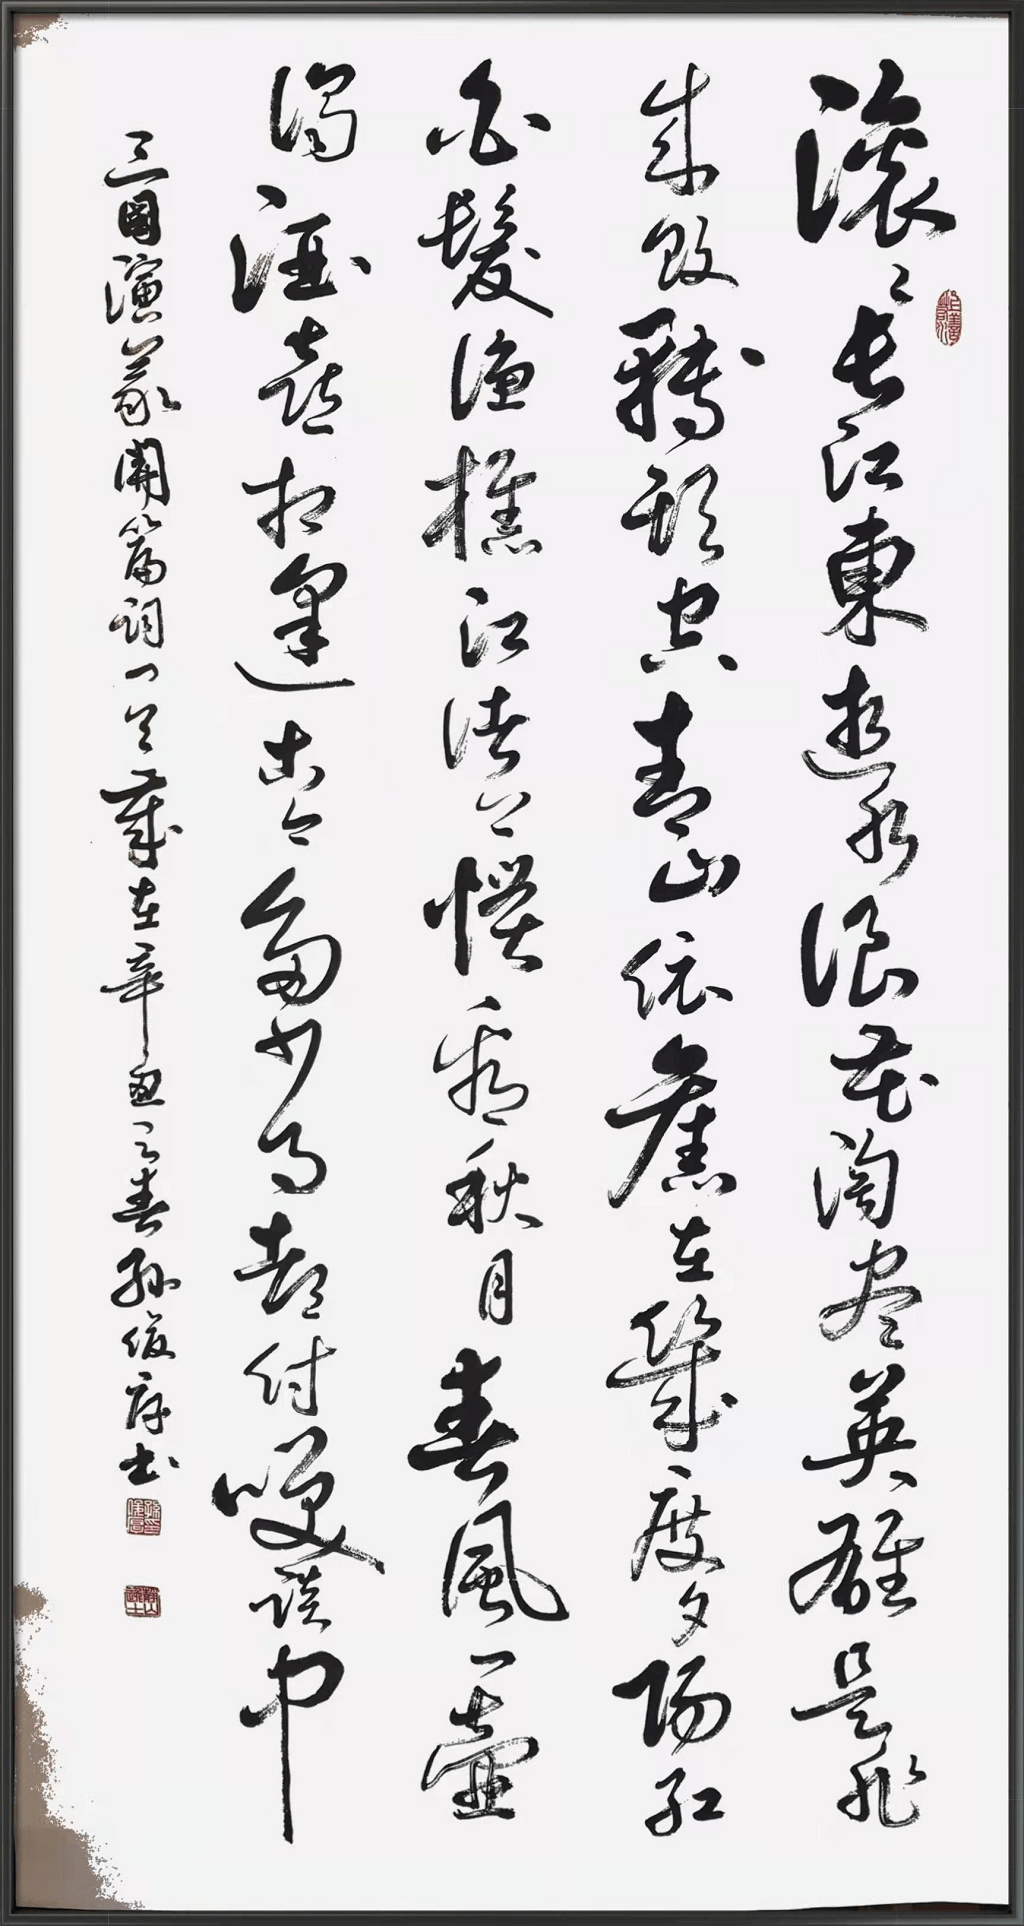 滚々長江東逝水浪花淘尽英雄是非
成敗轉頭空青山依舊在幾度夕陽紅
白髮漁樵江渚上慣看秋月春風一壺
濁酒喜相逢古今多少事都付笑談中
三國演義開篇詞一首歲在辛丑之春孫俊书